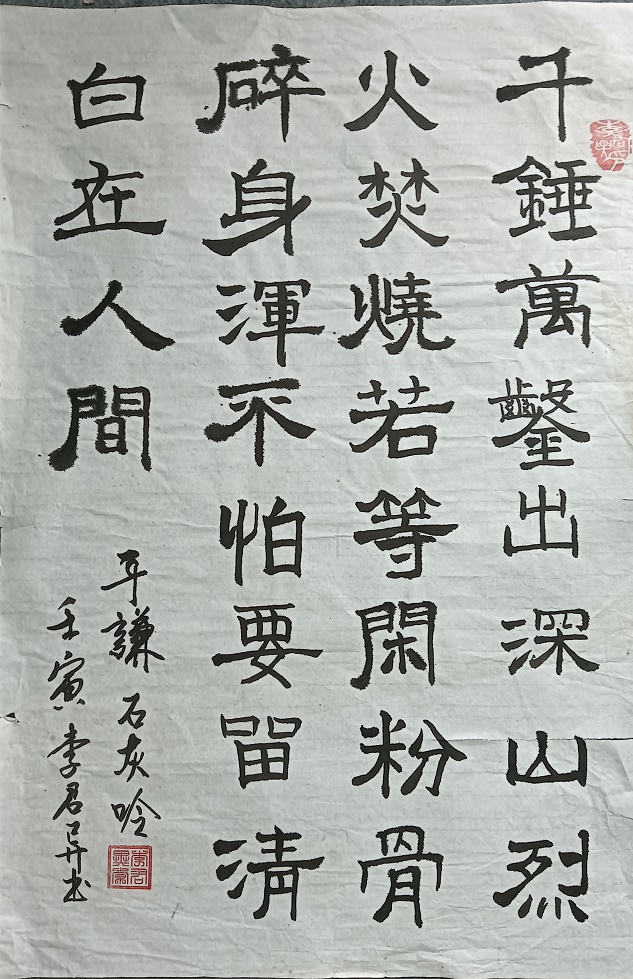 千錘萬鑿出深山烈
火焚燒若等閑粉骨
碎身渾不怕要留清
白在人間
于謙石灰吟
壬寅李君昇书